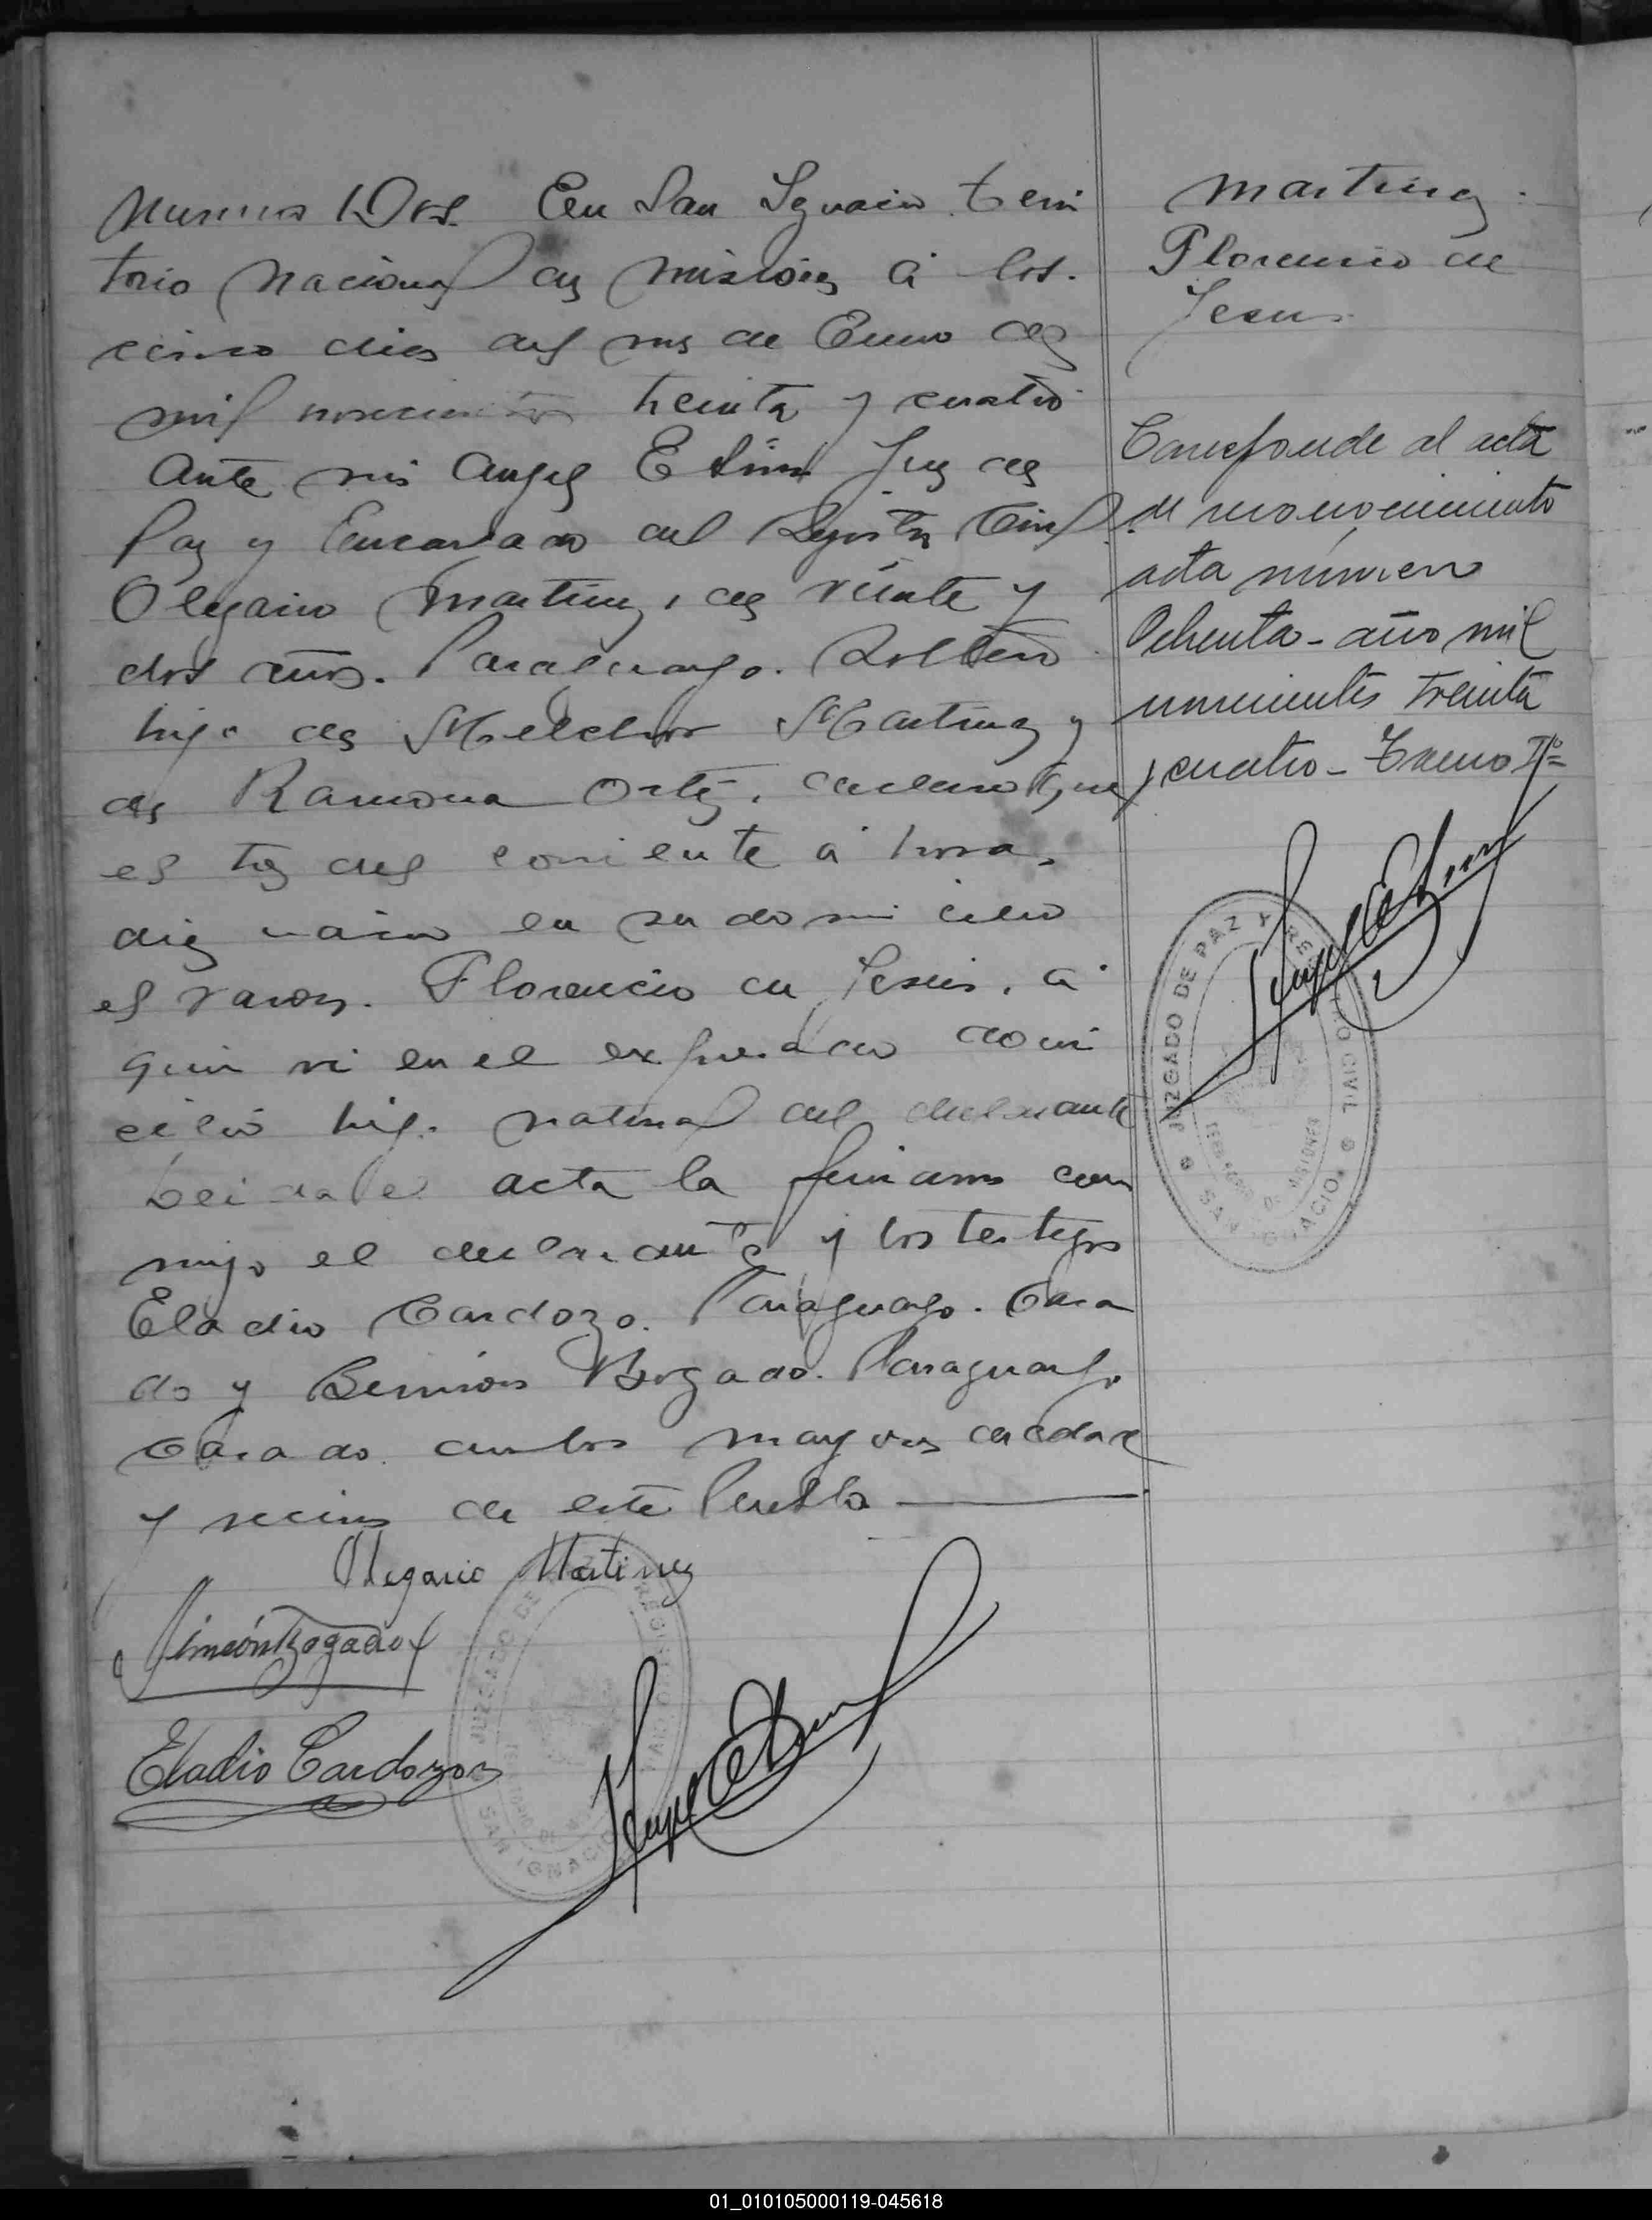 Numero Dos. En San Ignacio Terri
torio Nacional de Misiones á los
cinco dias del mes de Enero de
mil novecientos treinta y cuatro
ante mi Angel E Juez de
Paz y Encargado del Registro Civil
Olegario Martinez, de veinte y
dos años. Paraguayo. Soltero
hijo de Melchor Martinez y
de Ramona Ortiz, declaro que
el tres del corriente á horas
diez nacio en su domicilio
el varon. Florencio de Jesus, á
quien vi en el expresado domi
cilio hijo natural del declarante
Leida el acta la firiamos con
migo el declarante y los testigos
Eladio Cardozo. Paraguayo. Casa
do y Simeon Bogado. Paraguayo.
Casado. ambos mayores de edad
y vecinos de este Pueblo
Olegario Martinez
Simeón Bogado
Eladio Cardozo
Martinez
Florencio de
Jesus
Corresponde al acta
de reconocimiento
acta número
Ochenta - año mil
novecientos treinta
y cuatro - Tomo Iº
JUZGADO DE PAZ Y REGISTRO CIVIL
TERRITORIO DE MISIONES
SAN IGNACIO
JUZGADO DE PAZ Y REGISTRO CIVIL
TERRITORIO DE MISIONES
SAN IGNACIO
01_010105000119-045618